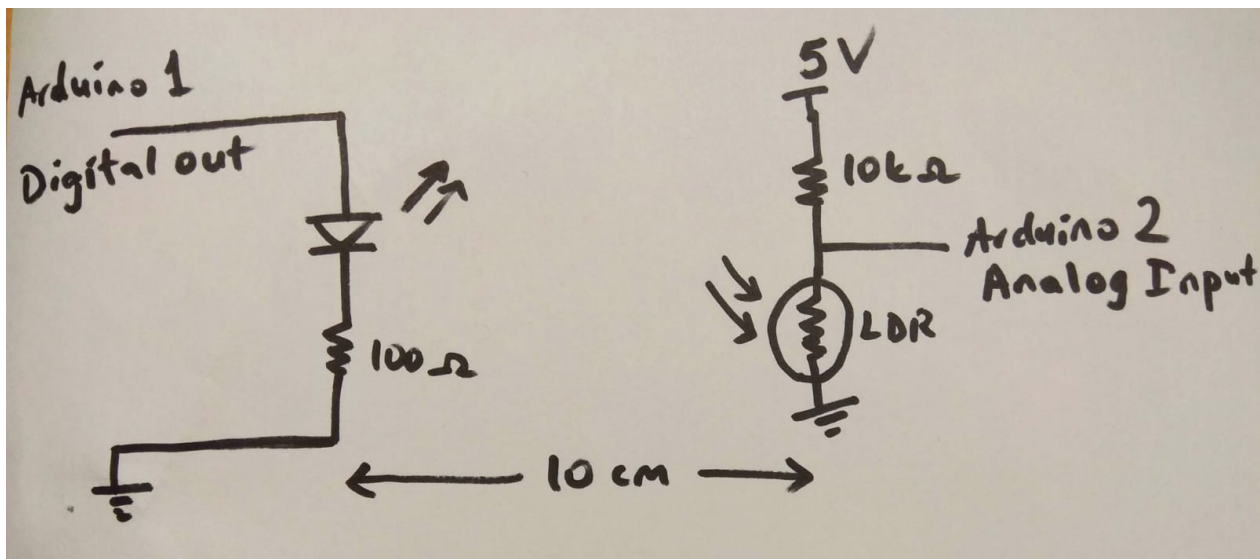 Arduino 1
Digital out
100Ω
5V
10kΩ
Arduino 2
Analog Input
LDR
10 cm